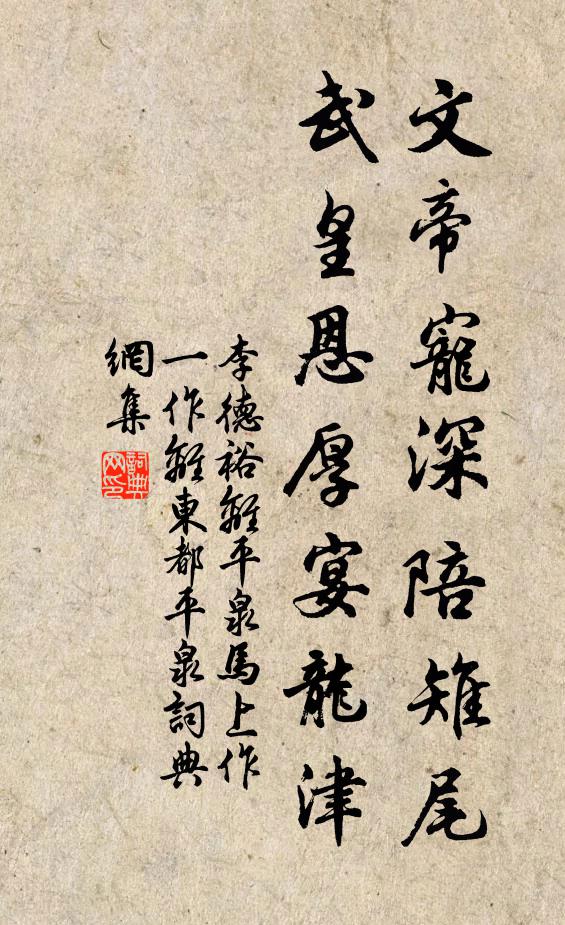 文帝寵深陪雉尾
武皇恩厚宴龍津
李德裕離平泉馬上作
一作離東都平泉詞典
網集
詞典網印